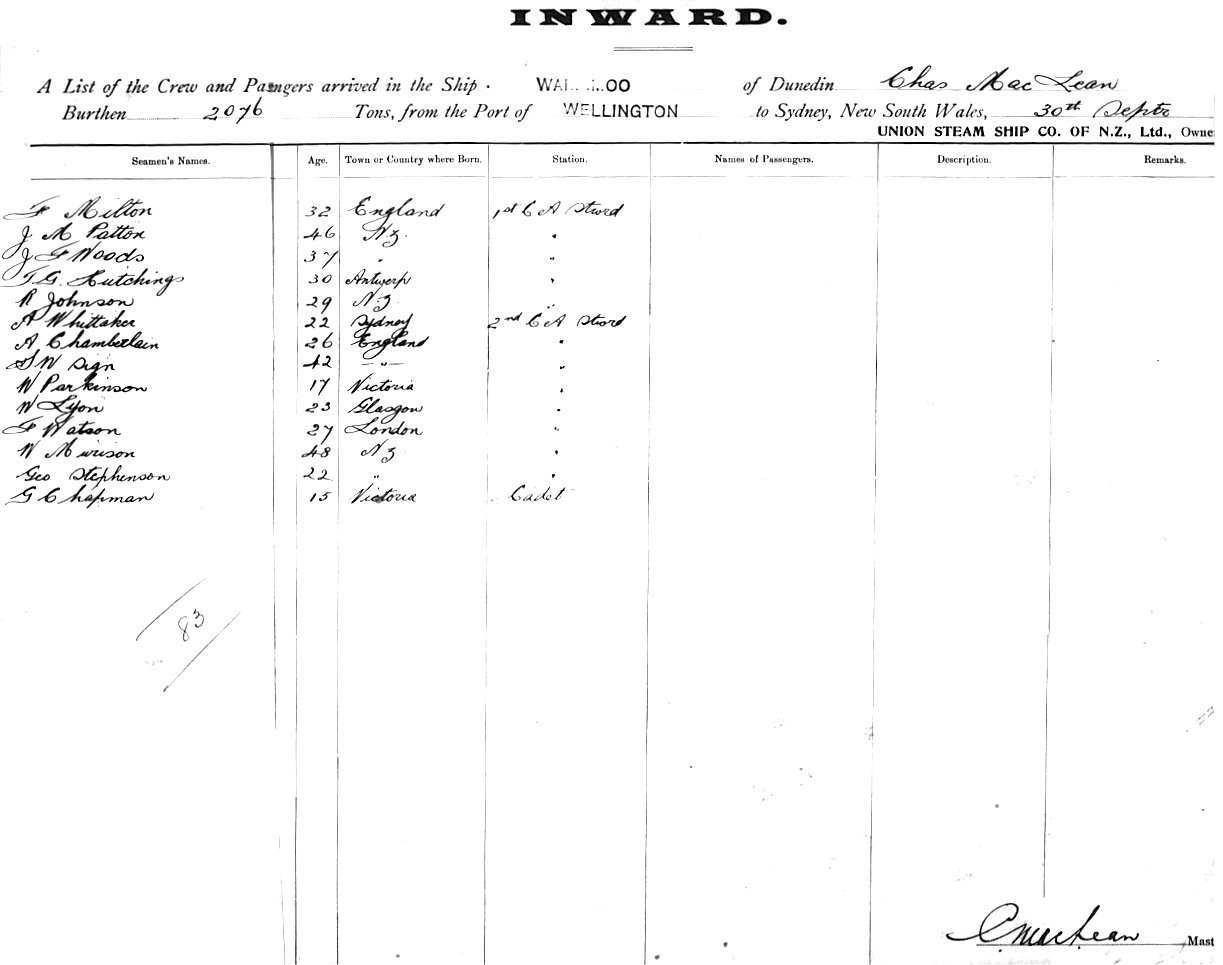 INWARD.
A List of the Crew and Pasengers arrived in the Ship of Dunedin Chas MacLean
Burthen 2076 Tons, from the Port of WELLINGTON to Sydney, New South Wales, 30th Septr
UNION STEAM SHIP CO. OF N.Z., Ltd., Owne
Seamen's Names. Age. Town or Country where Born. Station. Names of Passengers. Description. Remarks.
F Milton 32 England 1st C A Stwd
J M Patton 46 NZ. "
J F Woods 37 " "
T.G. Hutchings 30 Antwerp "
R Johnson 29 NZ "
A Whittaker 22 Sydney 2nd C A Stwd
A Chamberlain 26 England "
S W Sign 42 -"- "
W Parkinson 17 Victoria "
W Lyon 23 Glasgow "
F Watson 27 London "
W Murison 48 NZ "
Geo Stephenson 22 " "
G Chapman 15 Victoria Cadet
83
CMacLean Mast